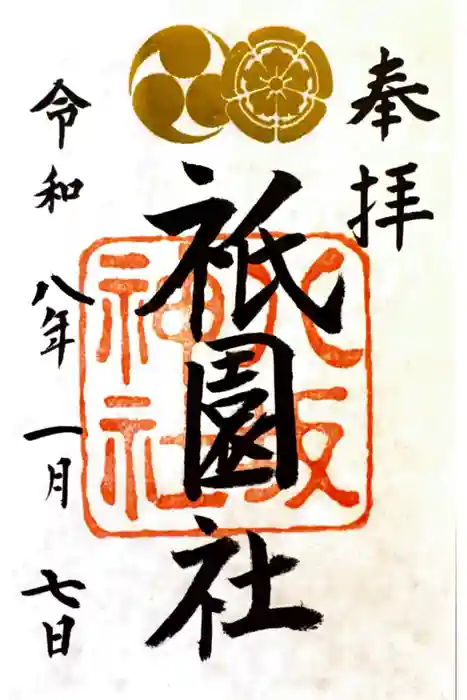 奉拝
祇園社
八坂神社
令和八年一月七日